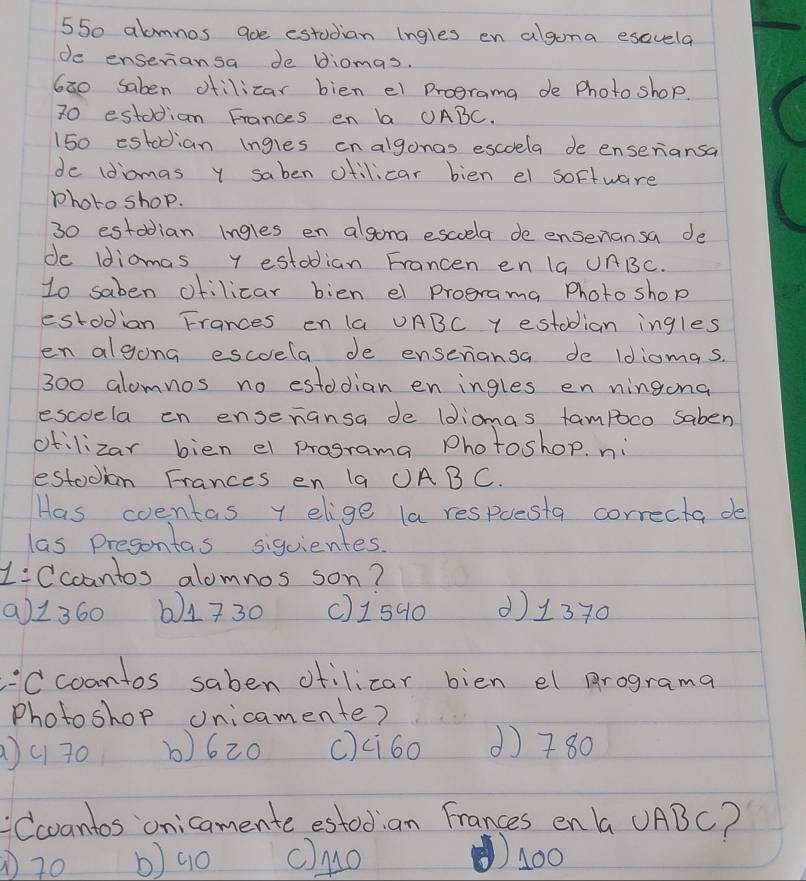 550 alumnos que estudian Ingles en alguna escuela
de enseñansa de biomas.
620 saben utilizar bien el Programa de Photoshop.
70 estudian Frances en la UABC.
150 estudian ingles en algunas escuela de enseñansa
de idiomas y saben utilicar bien el software
Photoshop.
30 estudian Ingles en alguna escuela de enseñansa de
de Idiomas y estudian Francen en la UABC.
10 saben utilicar bien el Programa Photoshop
estudian Frances en la UABC y estudian ingles
en alguna escuela de enseñansa de Idiomas.
300 alumnos no estudian en ingles en ninguna
escuela en enseñansa de Idiomas tampoco saben
utilizar bien el Programa Photoshop. ni
estudian Frances en la UABC.
Has cuentas y elige la respuesta correcta de
las preguntas siguientes.
1: Ccuantos alumnos son?
a) 1360 b) 1730 c) 1540 d) 1370
: C cuantos saben utilizar bien el Programa
Photoshop unicamente?
a) 470 b) 620 c) 460 d) 780
: Ccuantos unicamente estudian Frances en la UABC?
a) 70 b) 40 c) 110 d) 100